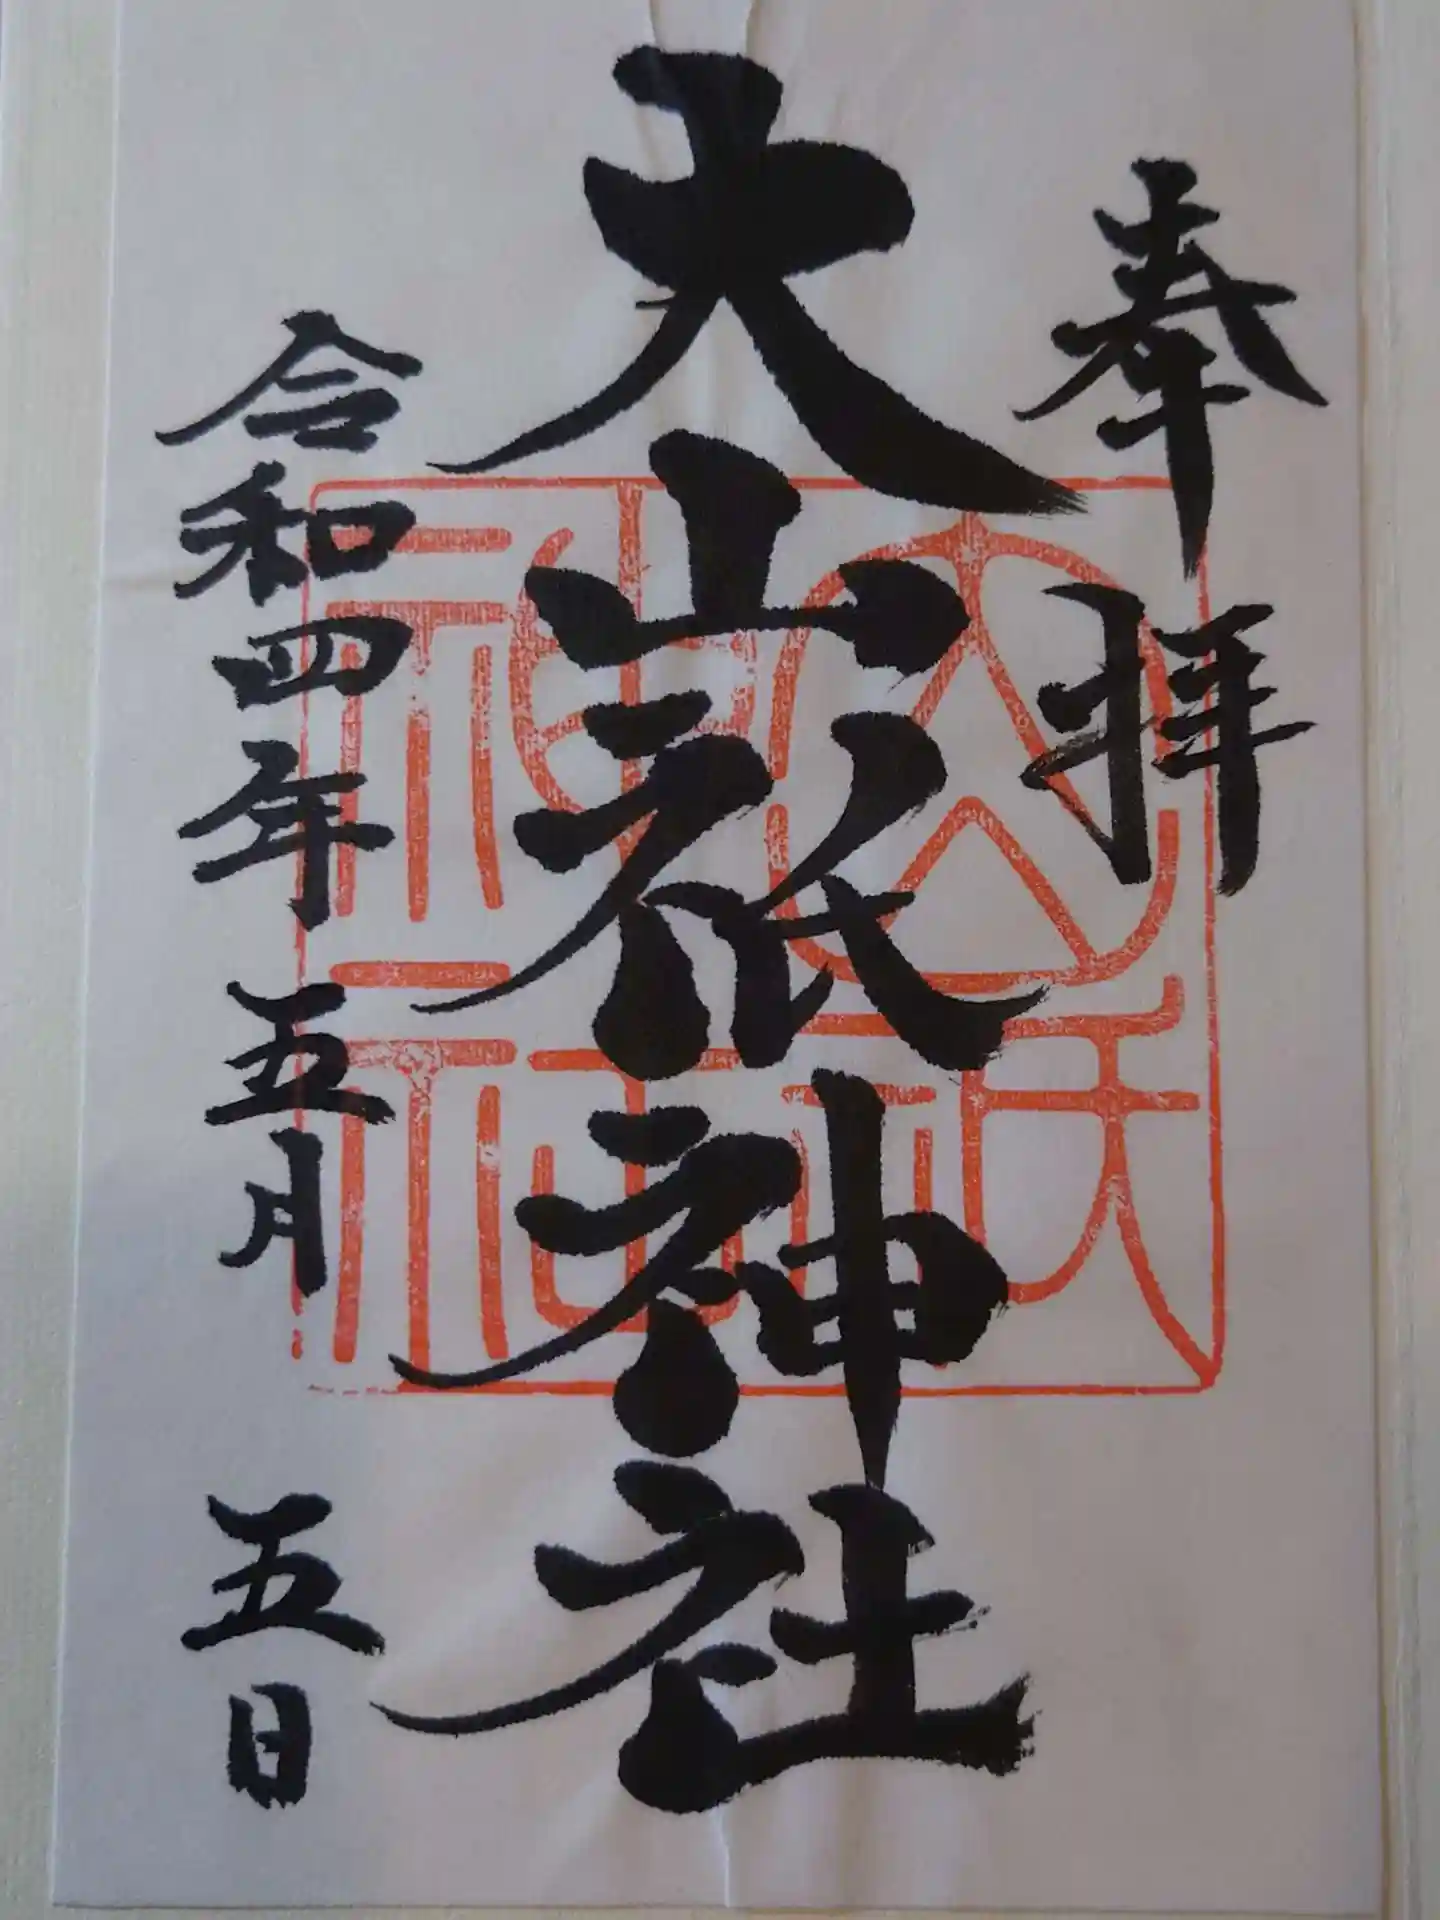 奉拝
大山祇神社
令和四年五月五日
大山祇神社